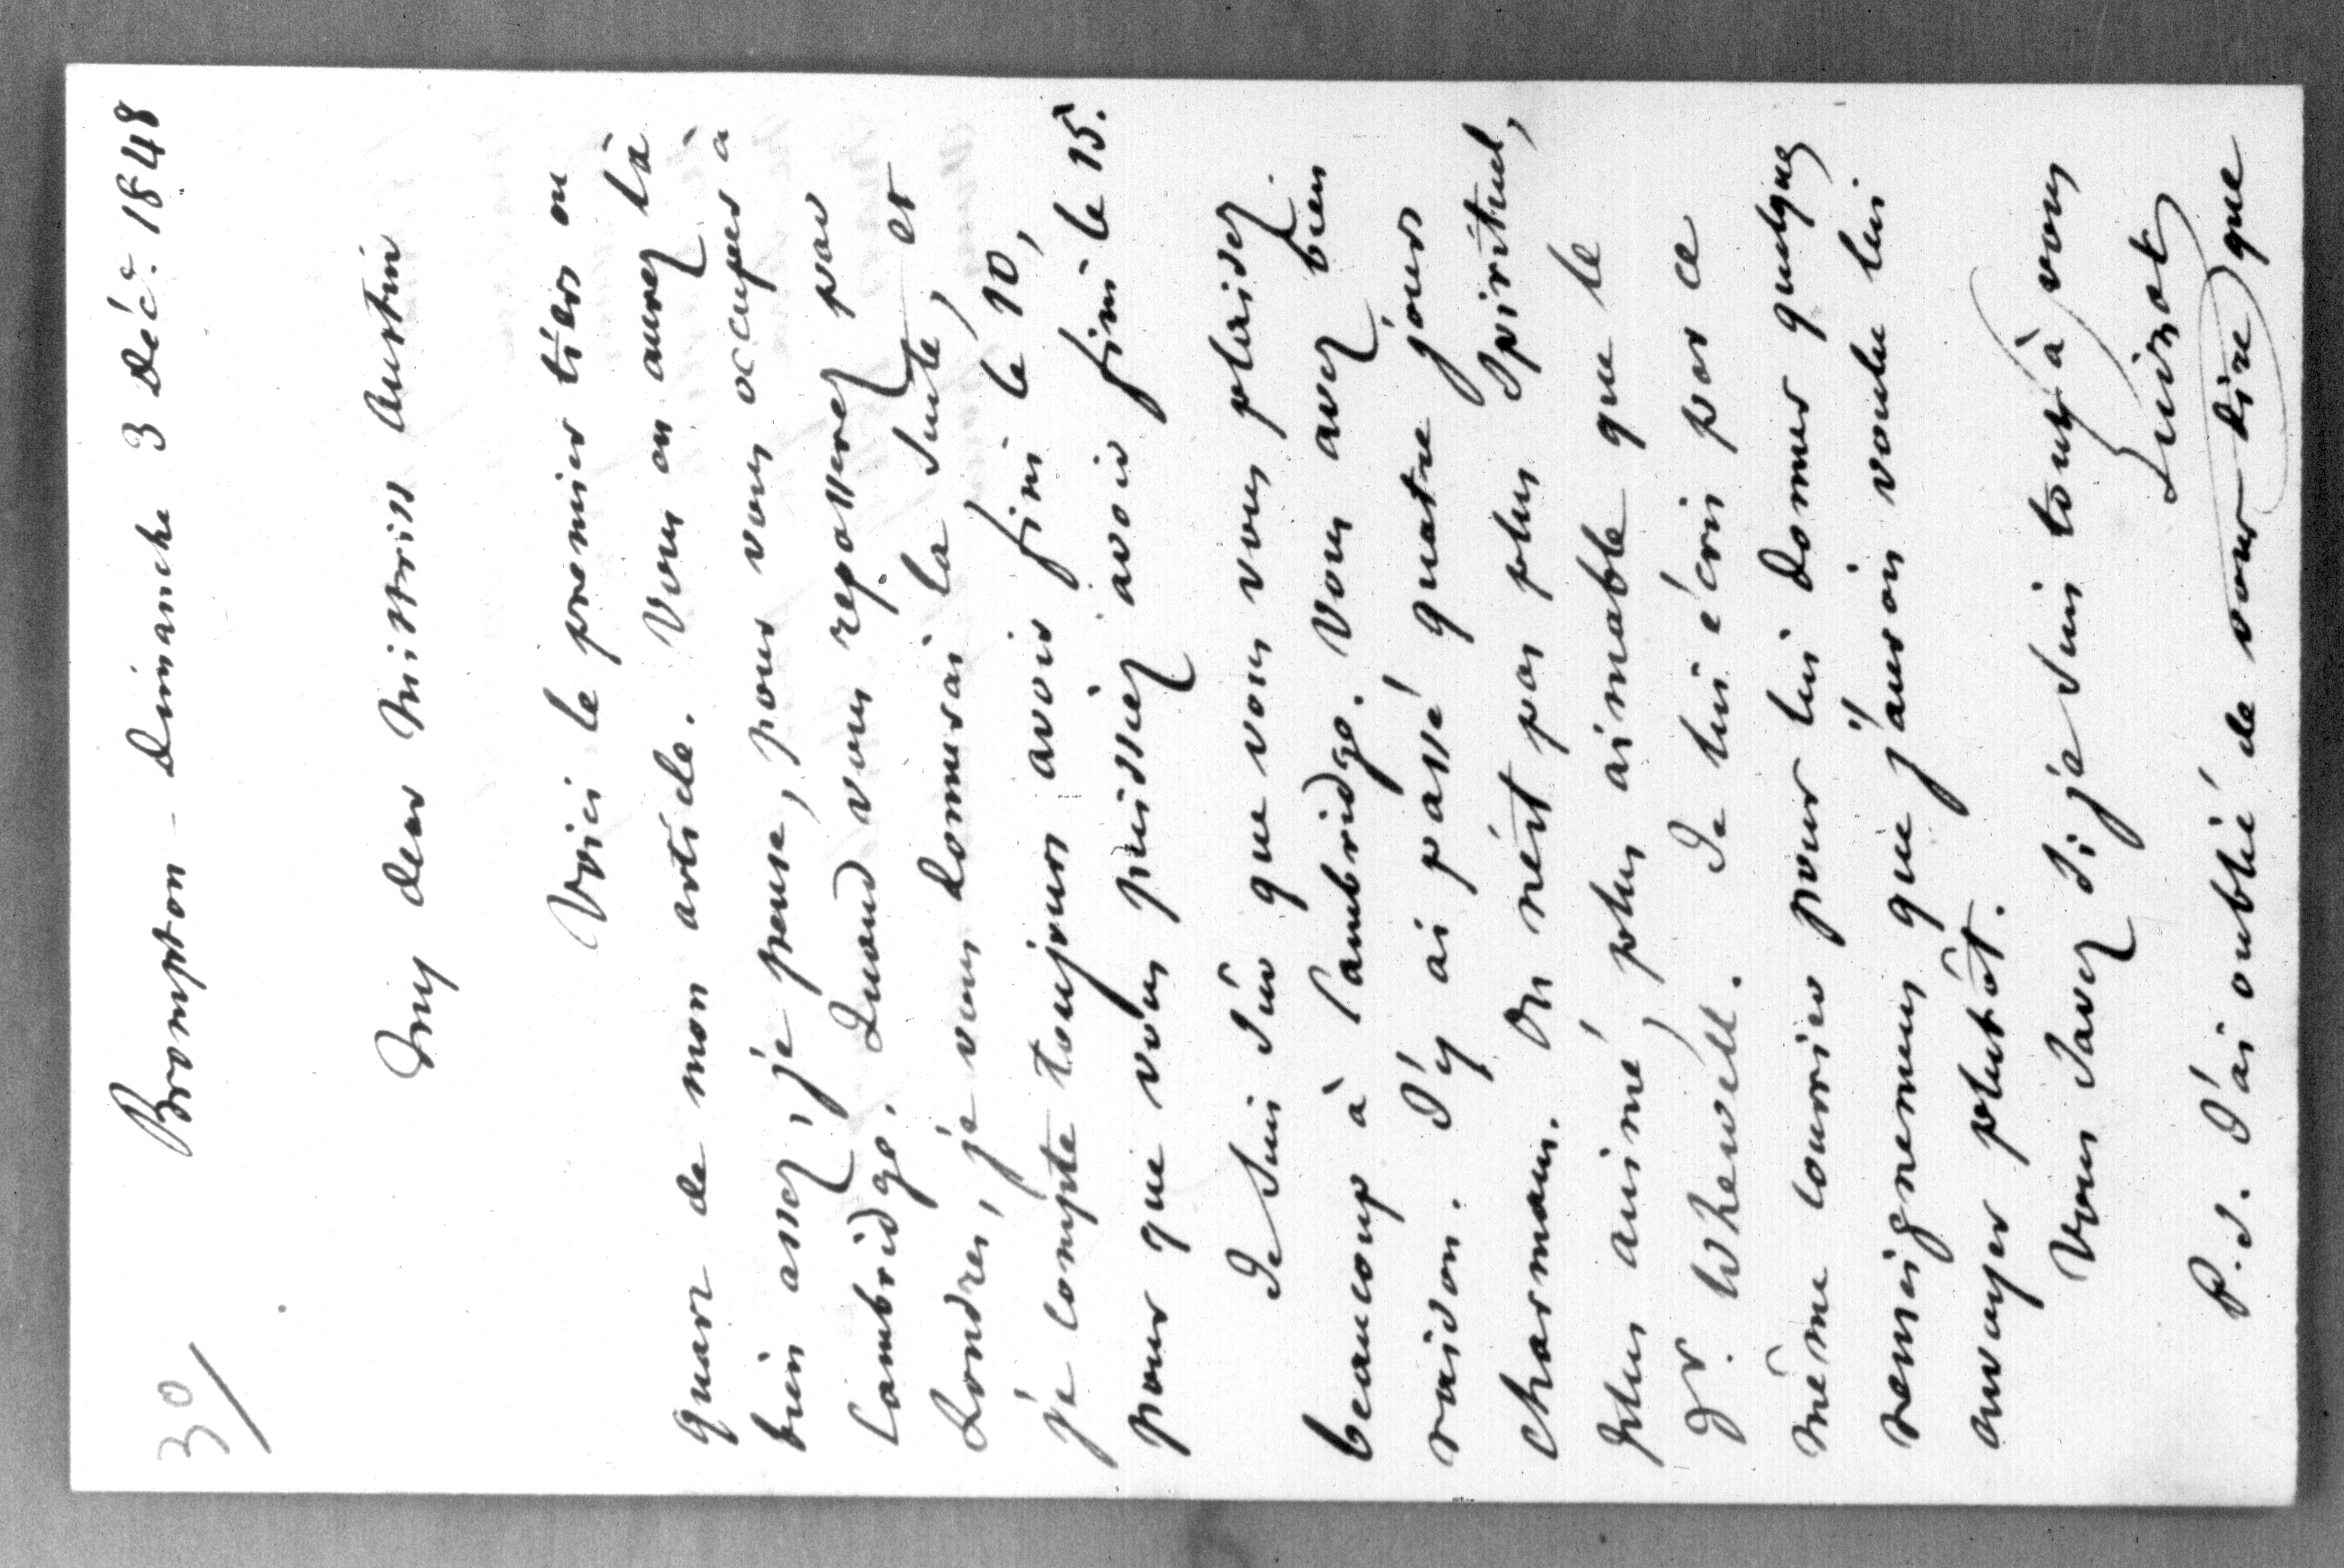 30
Brompton - Dimanche 3 Déc. 1848
My dear Mistriss Austin
Voici le premier tiers ou
quart de mon article. Vous en aurez là
bien assez, je pense, pour vous occuper à
Cambridge. Quand vous repasserez par
Londres, je vous donnerai la suite, et
je compte toujours avoir fini le 10,
pour que vous puissiez avoir fini le 15.
Je suis sûr que vous vous plaisez
beaucoup à Cambridge. Vous avez bien
raison. J'y ai passé quatre jours
charmans. On n'est pas plus spirituel,
plus animé, plus aimable que le
Dr. Whewell. Je lui écris par ce
même courrier pour lui donner quelques
renseignemens que j'aurois voulu lui
envoyer plutôt.
Vous savez si je suis tout à vous
Guizot
P.S. J'ai oublié de vous dire que